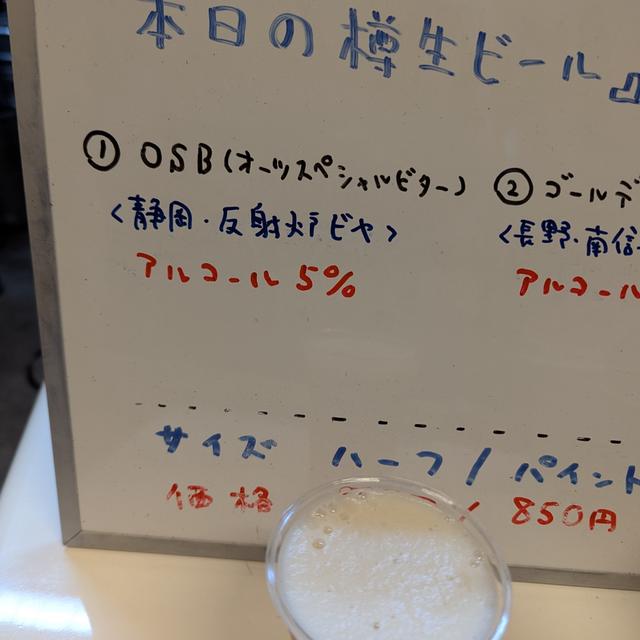 本日の樽生ビール
① OSB(オーツスペシャルビター)
<静岡・反射炉ビヤ>
アルコール 5%
② ゴールデ
<長野・南信
アルコール
サイズ ハーフ / パイント
価格 / 850円